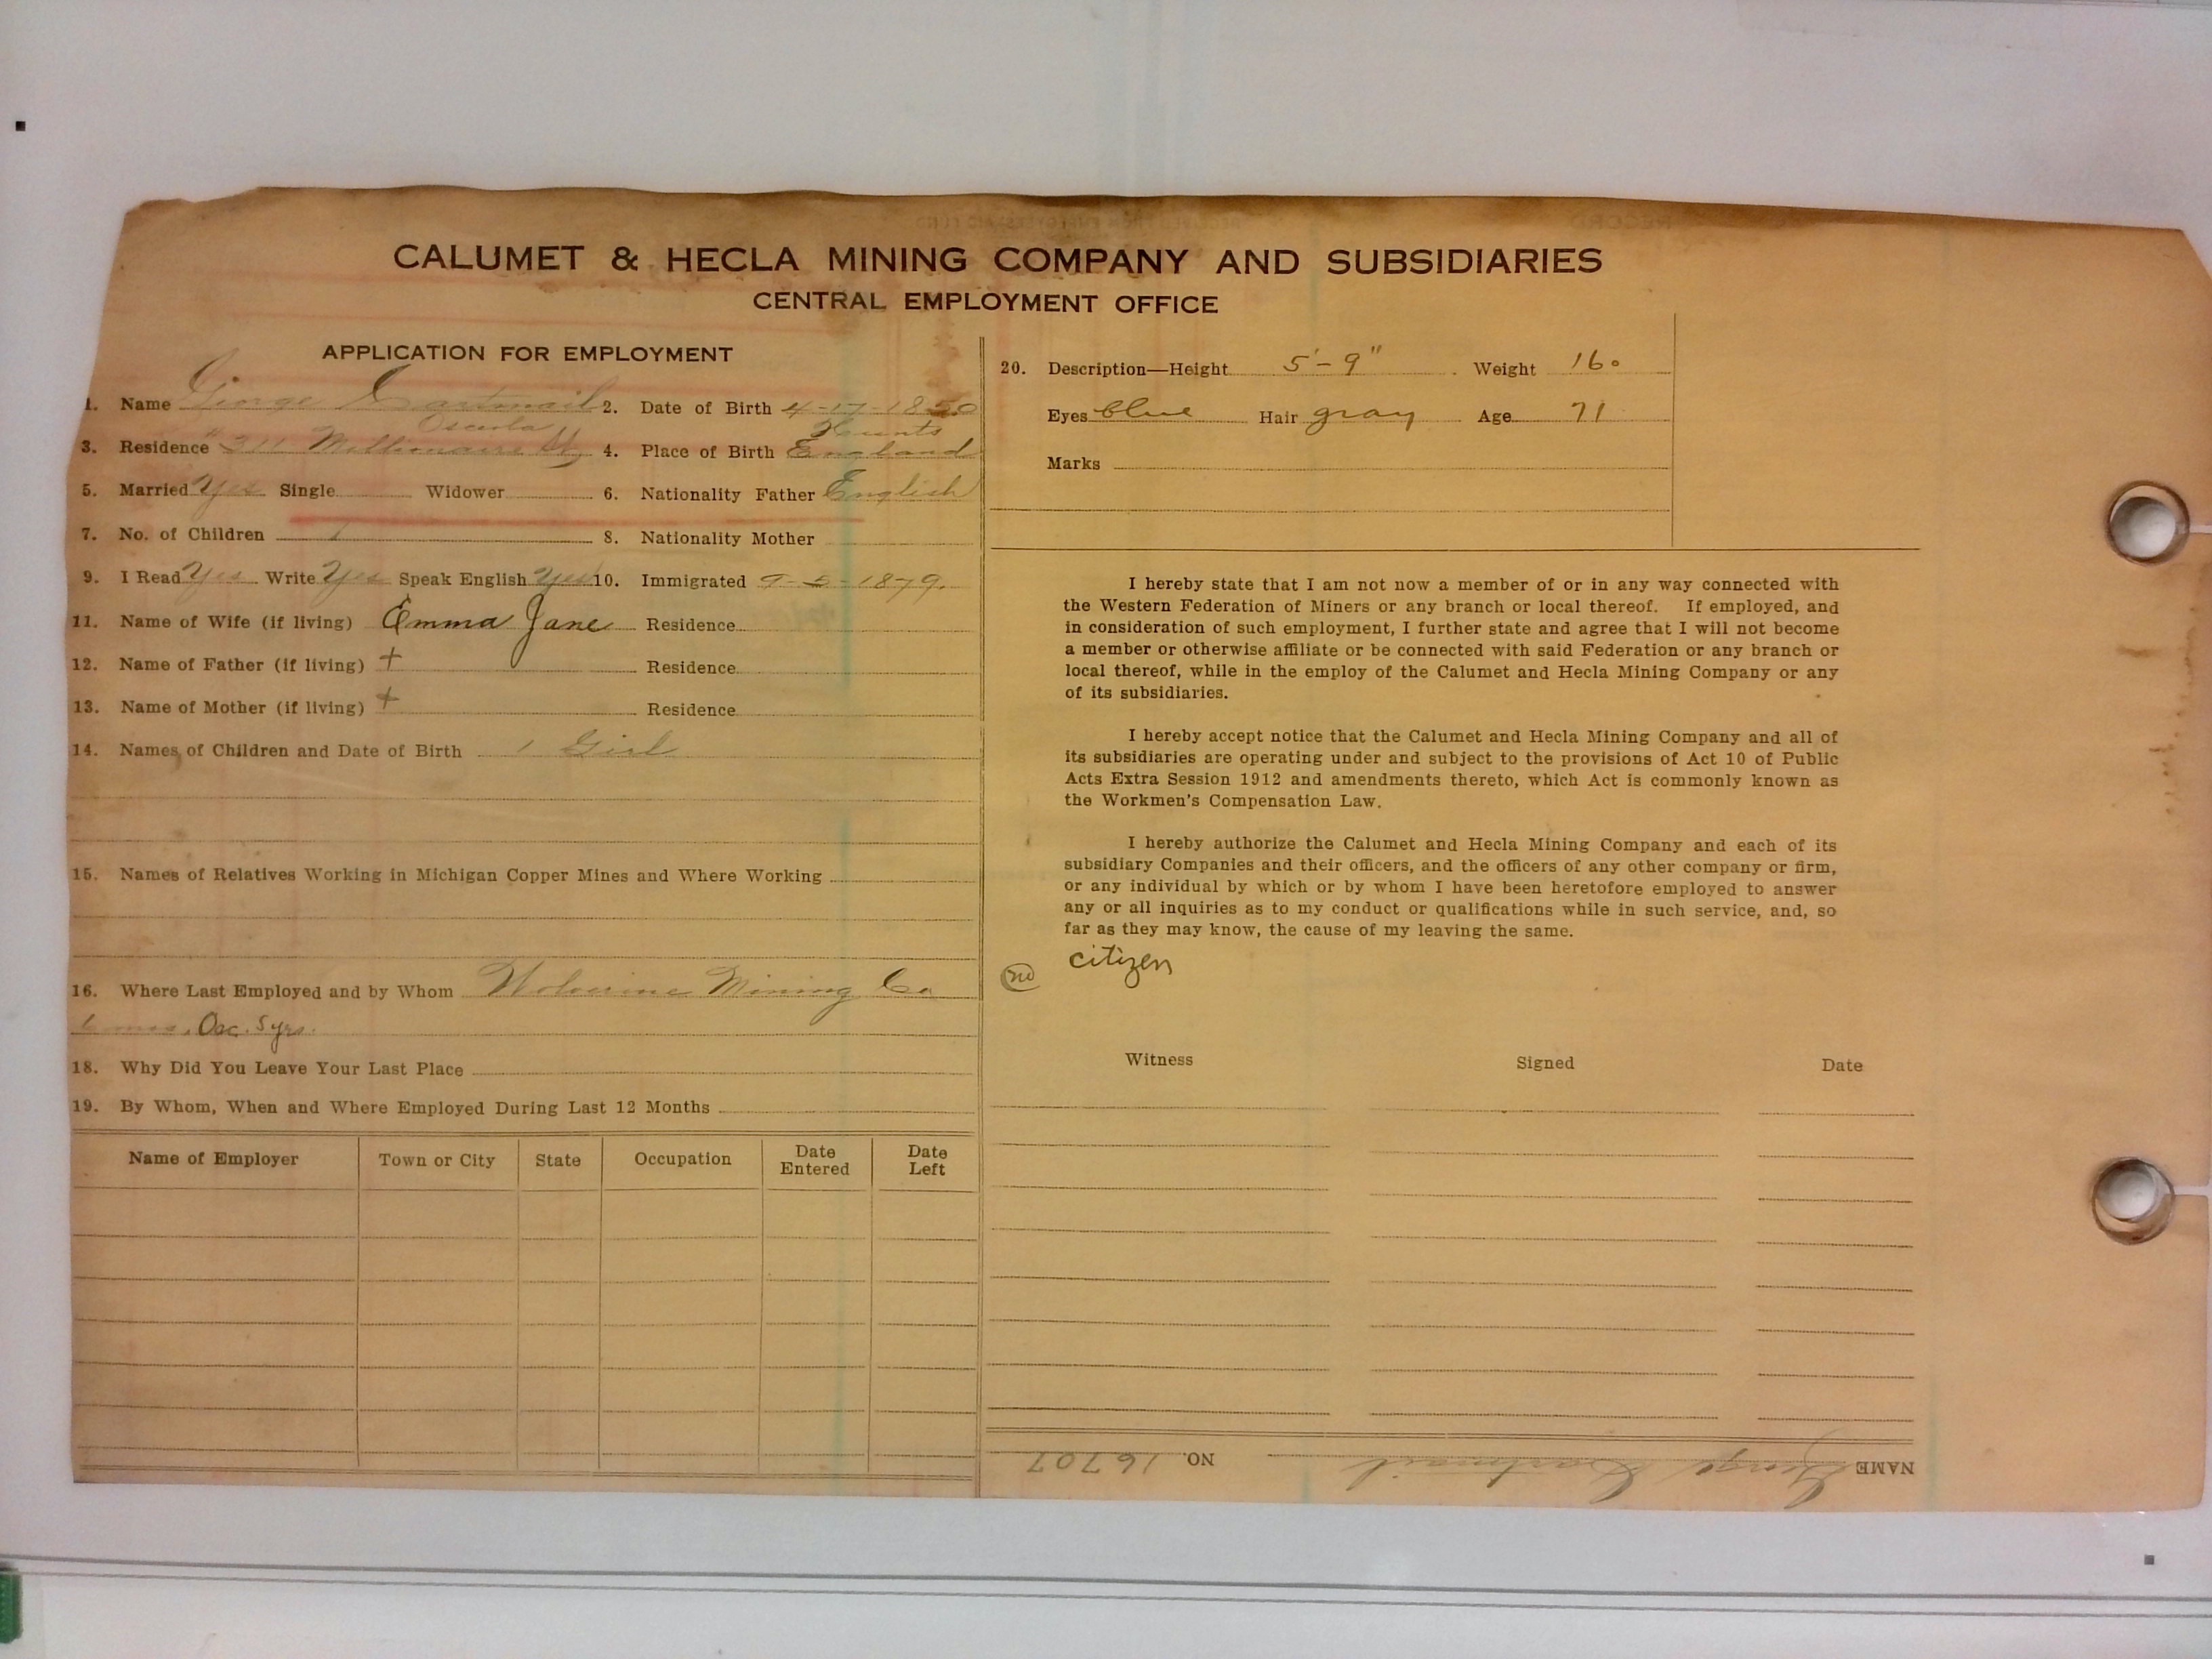 CALUMET & HECLA MINING COMPANY AND SUBSIDIARIES
CENTRAL EMPLOYMENT OFFICE
APPLICATION FOR EMPLOYMENT
1. Name George Cartmail 2. Date of Birth 4-17-1850
Osceola
Hunts
3. Residence 311 Millionaire St 4. Place of Birth England
5. Married Yes Single Widower 6. Nationality Father English
7. No. of Children 1 8. Nationality Mother
9. I Read Yes Write Yes Speak English Yes 10. Immigrated 9-5-1879.
11. Name of Wife (if living) Emma Jane Residence
12. Name of Father (if living) + Residence
13. Name of Mother (if living) + Residence
14. Names of Children and Date of Birth 1 Girl
15. Names of Relatives Working in Michigan Copper Mines and Where Working
16. Where Last Employed and by Whom Wolverine Mining Co
6 mos. Osc. 5 yrs.
18. Why Did You Leave Your Last Place
19. By Whom, When and Where Employed During Last 12 Months
Name of Employer Town or City State Occupation Date Entered Date Left
20. Description—Height 5'-9" Weight 160
Eyes blue Hair gray Age 71
Marks
I hereby state that I am not now a member of or in any way connected with
the Western Federation of Miners or any branch or local thereof. If employed, and
in consideration of such employment, I further state and agree that I will not become
a member or otherwise affiliate or be connected with said Federation or any branch or
local thereof, while in the employ of the Calumet and Hecla Mining Company or any
of its subsidiaries.
I hereby accept notice that the Calumet and Hecla Mining Company and all of
its subsidiaries are operating under and subject to the provisions of Act 10 of Public
Acts Extra Session 1912 and amendments thereto, which Act is commonly known as
the Workmen's Compensation Law.
I hereby authorize the Calumet and Hecla Mining Company and each of its
subsidiary Companies and their officers, and the officers of any other company or firm,
or any individual by which or by whom I have been heretofore employed to answer
any or all inquiries as to my conduct or qualifications while in such service, and, so
far as they may know, the cause of my leaving the same.
citizen
Witness Signed Date
NAME George Cartmail NO. 16707